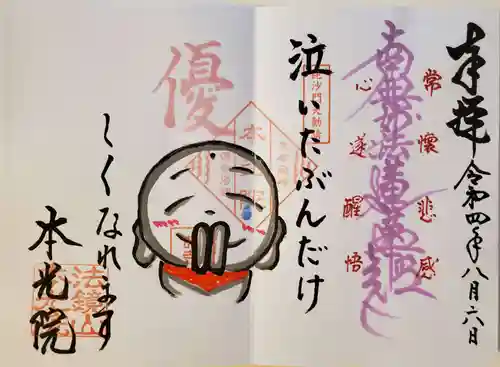 奉拝
令和四年八月六日
常懐悲感
心遂醒悟
南無妙法蓮華経
泣いたぶんだけ
優
しくなれます
本光院
法鏡山